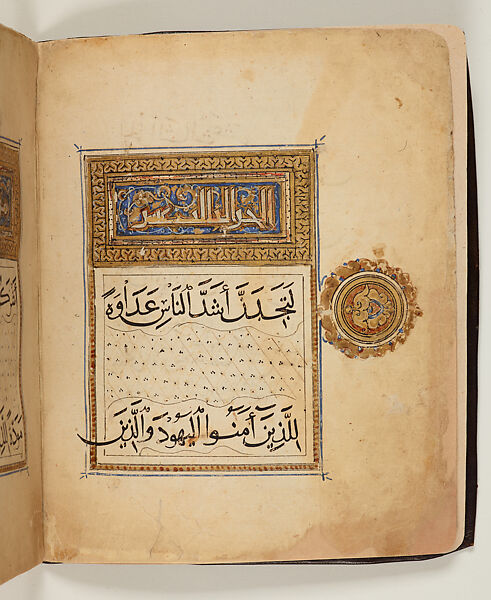 الجزو الثالث عشر
لَتَجِدَنَّ أَشَدَّ النَّاسِ عَدَاوَةً
لِلَّذِينَ آمَنُوا الْيَهُودَ وَالَّذِينَ